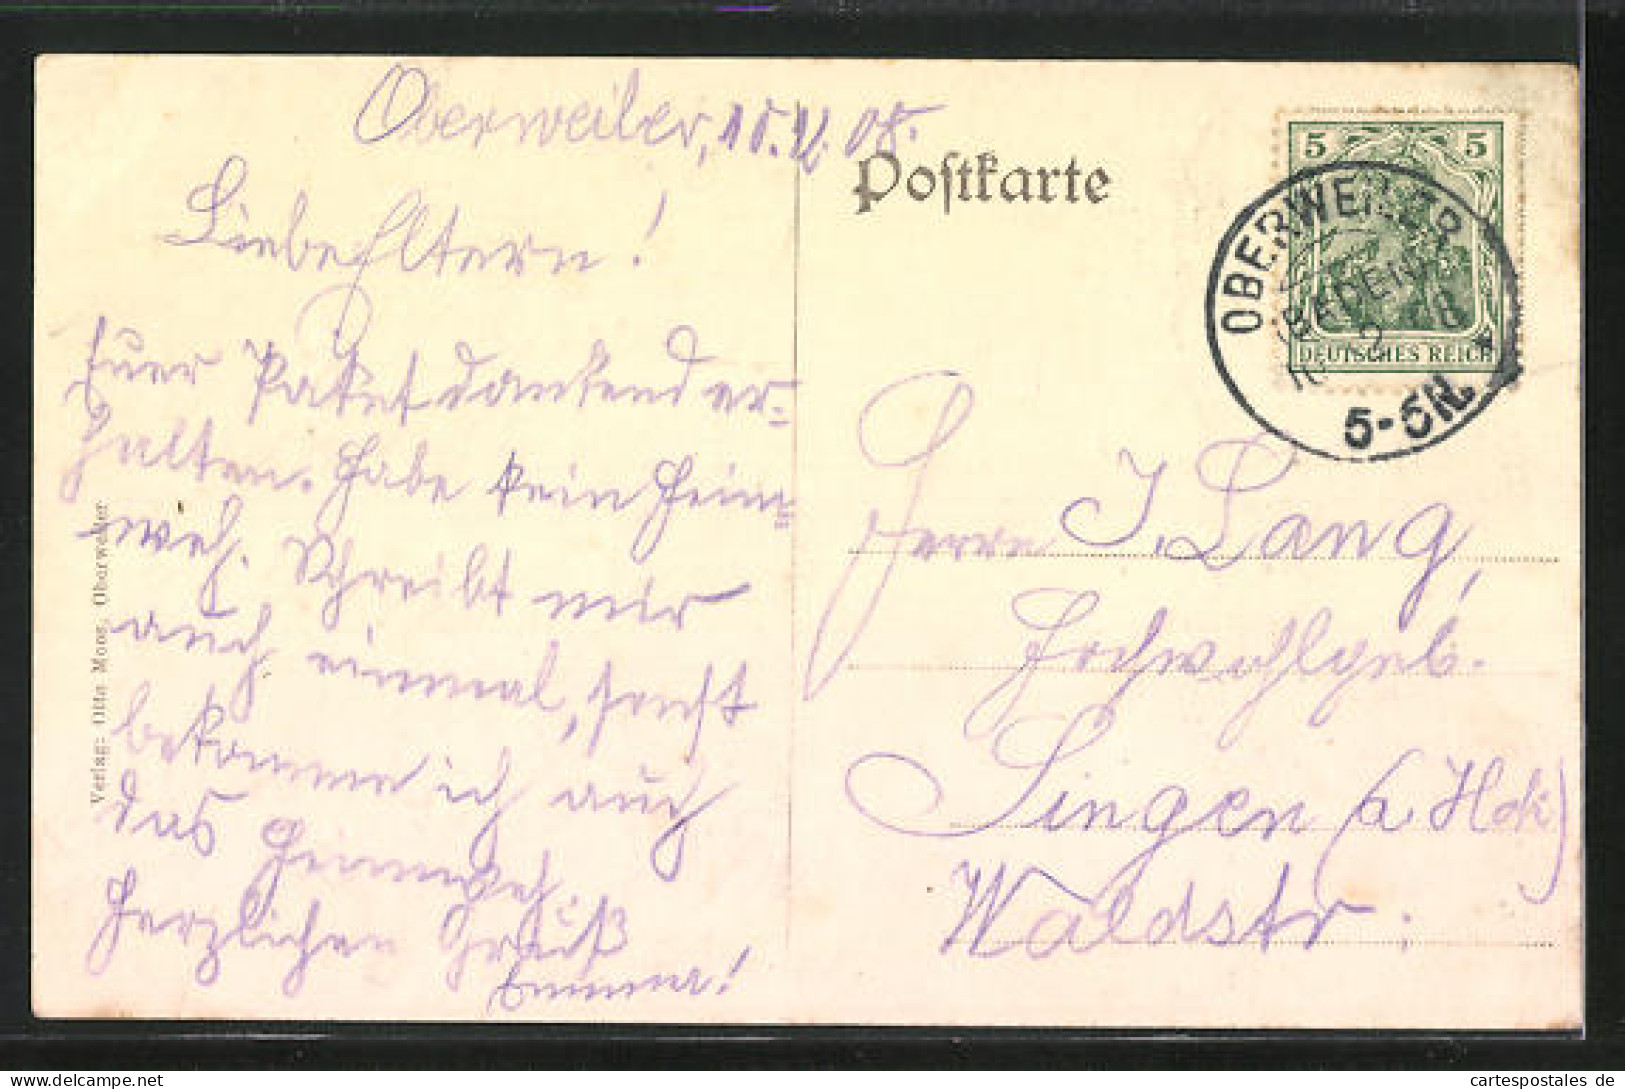 Oberweiler, 15. V. 08.
Liebe Eltern!
Euer Paket dankend er-
halten. Habe kein Heim-
weh. Schreibt mir
auch einmal, sonst
bekomme ich auch
das Heimweh.
Herzlichen Gruß
Emma!
Verlag: Otto Moos, Oberweiler
Postkarte
5 5
DEUTSCHES REICH
OBERWEILER
(BADEN)
5-5N.
Herrn J. Lang,
Hochwohlgeb.
Singen (a. Htwl)
Waldstr.
cartespostales de